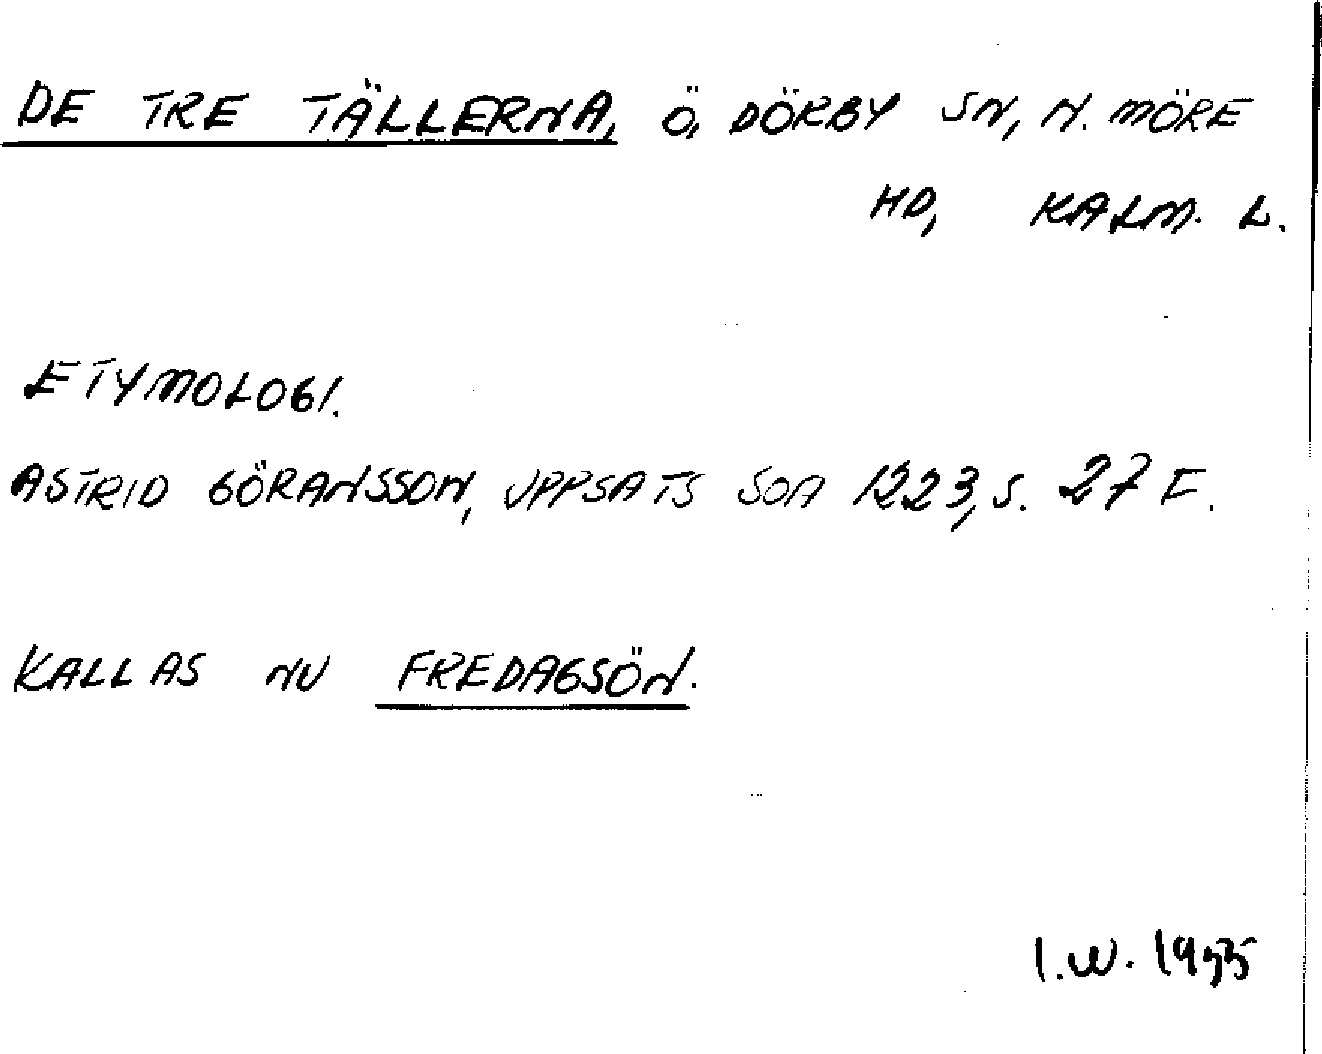 DE TRE TÄLLERNA, Ö, DÖRBY SN, N. MÖRE
HD, KALM. L.
ETYMOLOGI.
ASTRID GÖRANSSON, UPPSATS SOA 1223, S. 27 F.
KALLAS NU FREDAGSÖN.
I.W. 1955